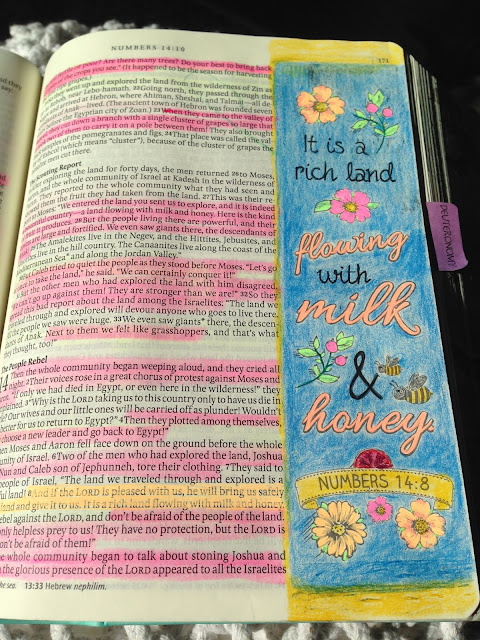 NUMBERS 14:10
171
of poor? Are there many trees? Do your best to bring back
of the crops you see." (It happened to be the season for harvesting
grapes.)
went up and explored the land from the wilderness of Zin as
near Lebo-hamath. 22 Going north, they passed through the
arrived at Hebron, where Ahiman, Sheshai, and Talmai—all de-
lived. (The ancient town of Hebron was founded seven
the Egyptian city of Zoan.) 23 When they came to the valley of
down a branch with a single cluster of grapes so large that
of them to carry it on a pole between them! They also brought
samples of the pomegranates and figs. 24 That place was called the val-
(which means "cluster"), because of the cluster of grapes the
men cut there.
Scouting Report
exploring the land for forty days, the men returned 26 to Moses,
and the whole community of Israel at Kadesh in the wilderness of
they reported to the whole community what they had seen and
them the fruit they had taken from the land. 27 This was their re-
to Moses: "We entered the land you sent us to explore, and it is indeed
country—a land flowing with milk and honey. Here is the kind
it produces. 28 But the people living there are powerful, and their
are large and fortified. We even saw giants there, the descendants of
The Amalekites live in the Negev, and the Hittites, Jebusites, and
live in the hill country. The Canaanites live along the coast of the
Sea* and along the Jordan Valley."
Caleb tried to quiet the people as they stood before Moses. "Let's go
to take the land," he said. "We can certainly conquer it!"
But the other men who had explored the land with him disagreed.
can't go up against them! They are stronger than we are!" 32 So they
spread this bad report about the land among the Israelites: "The land we
traveled through and explored will devour anyone who goes to live there.
the people we saw were huge. 33 We even saw giants* there, the descen-
of Anak. Next to them we felt like grasshoppers, and that's what
they thought, too!"
The People Rebel
Then the whole community began weeping aloud, and they cried all
night. 2 Their voices rose in a great chorus of protest against Moses and
"If only we had died in Egypt, or even here in the wilderness!" they
complained. 3 "Why is the LORD taking us to this country only to have us die in
Our wives and our little ones will be carried off as plunder! Wouldn't
better for us to return to Egypt?" 4 Then they plotted among themselves,
choose a new leader and go back to Egypt!"
Then Moses and Aaron fell face down on the ground before the whole
community of Israel. 6 Two of the men who had explored the land, Joshua
Nun and Caleb son of Jephunneh, tore their clothing. 7 They said to
people of Israel, "The land we traveled through and explored is a
land! 8 And if the LORD is pleased with us, he will bring us safely
land and give it to us. It is a rich land flowing with milk and honey.
rebel against the LORD, and don't be afraid of the people of the land.
only helpless prey to us! They have no protection, but the LORD is
Don't be afraid of them!"
the whole community began to talk about stoning Joshua and
the glorious presence of the LORD appeared to all the Israelites
the sea. 13:33 Hebrew nephilim.
It is a
rich land
flowing
with
milk
&
honey.
NUMBERS 14:8
DEUTERONOMY